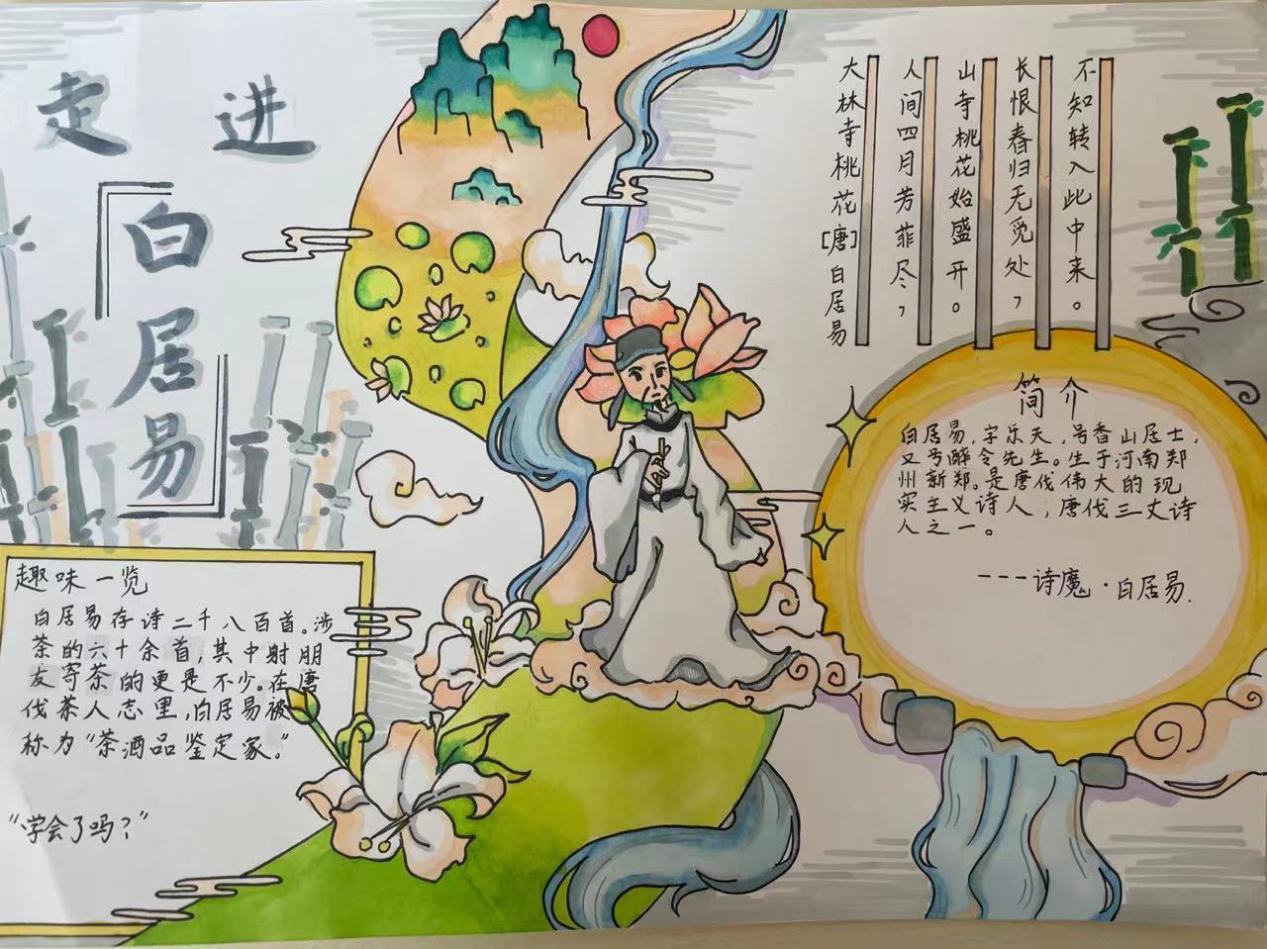 走进
「白居易」
大林寺桃花[唐]白居易
人间四月芳菲尽，
山寺桃花始盛开。
长恨春归无觅处，
不知转入此中来。
简介
白居易，字乐天，号香山居士，
又号醉令先生。生于河南郑
州新郑。是唐伐伟大的现
实主义诗人，唐伐三丈诗
人之一。
---诗魔·白居易.
趣味一览
白居易存诗二千八百首。涉
茶的六十余首，其中射朋
友寄茶的更是不少。在唐
伐茶人志里，白居易被
称为“茶酒品鉴定家。”
“学会了吗？”